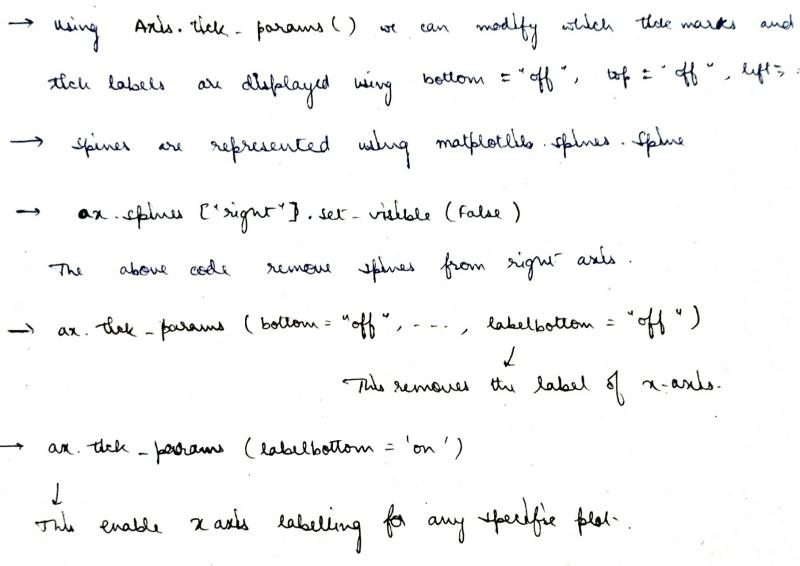 → Using Axis.tick_params() we can modify which tick marks and
tick labels are displayed using bottom = "off", top = "off", left =
→ Spines are represented using matplotlib.spines.Spine
→ ax.spines ["right"].set_visible (False)
The above code remove spines from right axis.
→ ax.tick_params (bottom = "off", ----, labelbottom = "off")
↓
This removes the label of x-axis.
→ ax.tick_params (labelbottom = 'on')
↓
This enable x axis labelling for any specific plot.